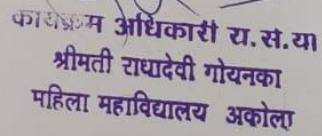 कार्यक्रम अधिकारी रा.से.या
श्रीमती राधादेवी गोयनका
महिला महाविद्यालय अकोला